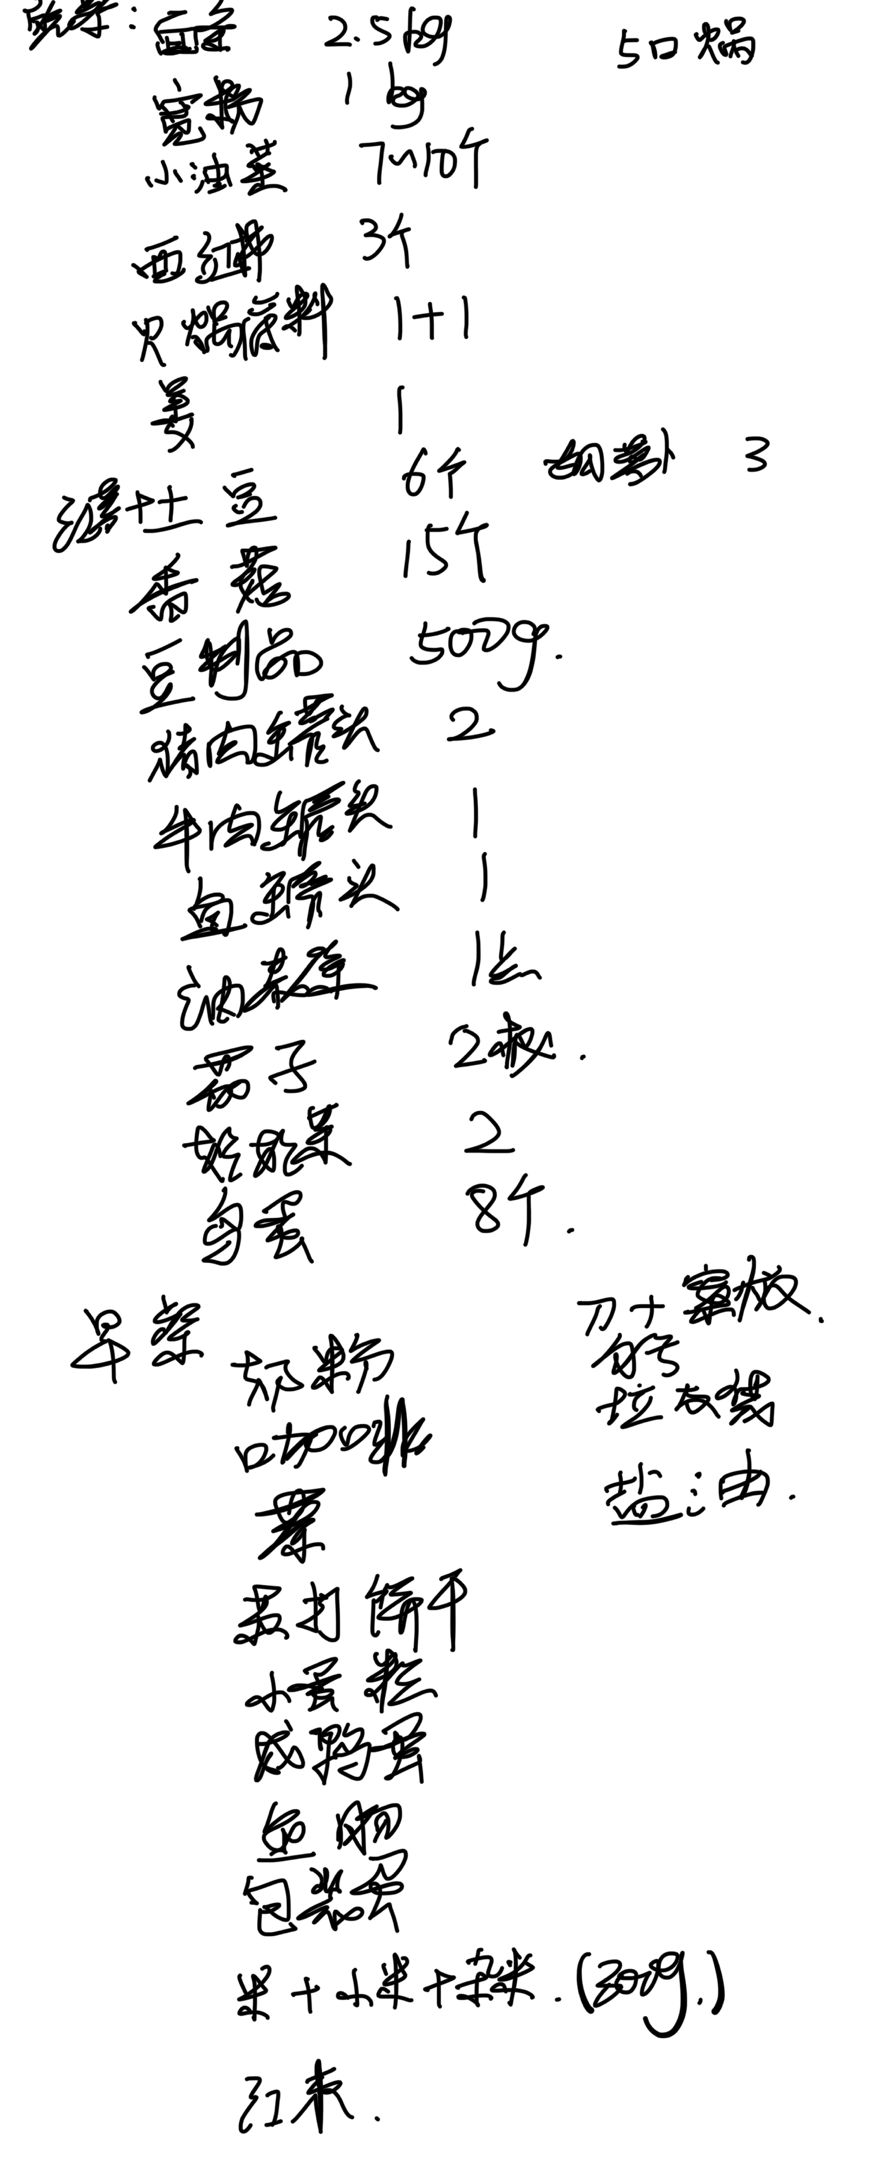 晚餐： 面条 2.5kg 5口锅
宽粉 1kg
小油菜 7~10个
西红柿 3个
火锅底料 1+1
姜 1
土豆 6个 胡萝卜 3
香菇 15个
豆制品 500g.
猪肉罐头 2
牛肉罐头 1
鱼罐头 1
油 1点
茄子 2根.
娃娃菜 2
鸟蛋 8个.
早餐
奶粉
咖啡
茶
苏打饼干
小蛋糕
咸鸭蛋
鱼
包装蛋
米+小米+杂米.(300g.)
红枣.
刀+案板.
勺子
垃圾袋
盐油.